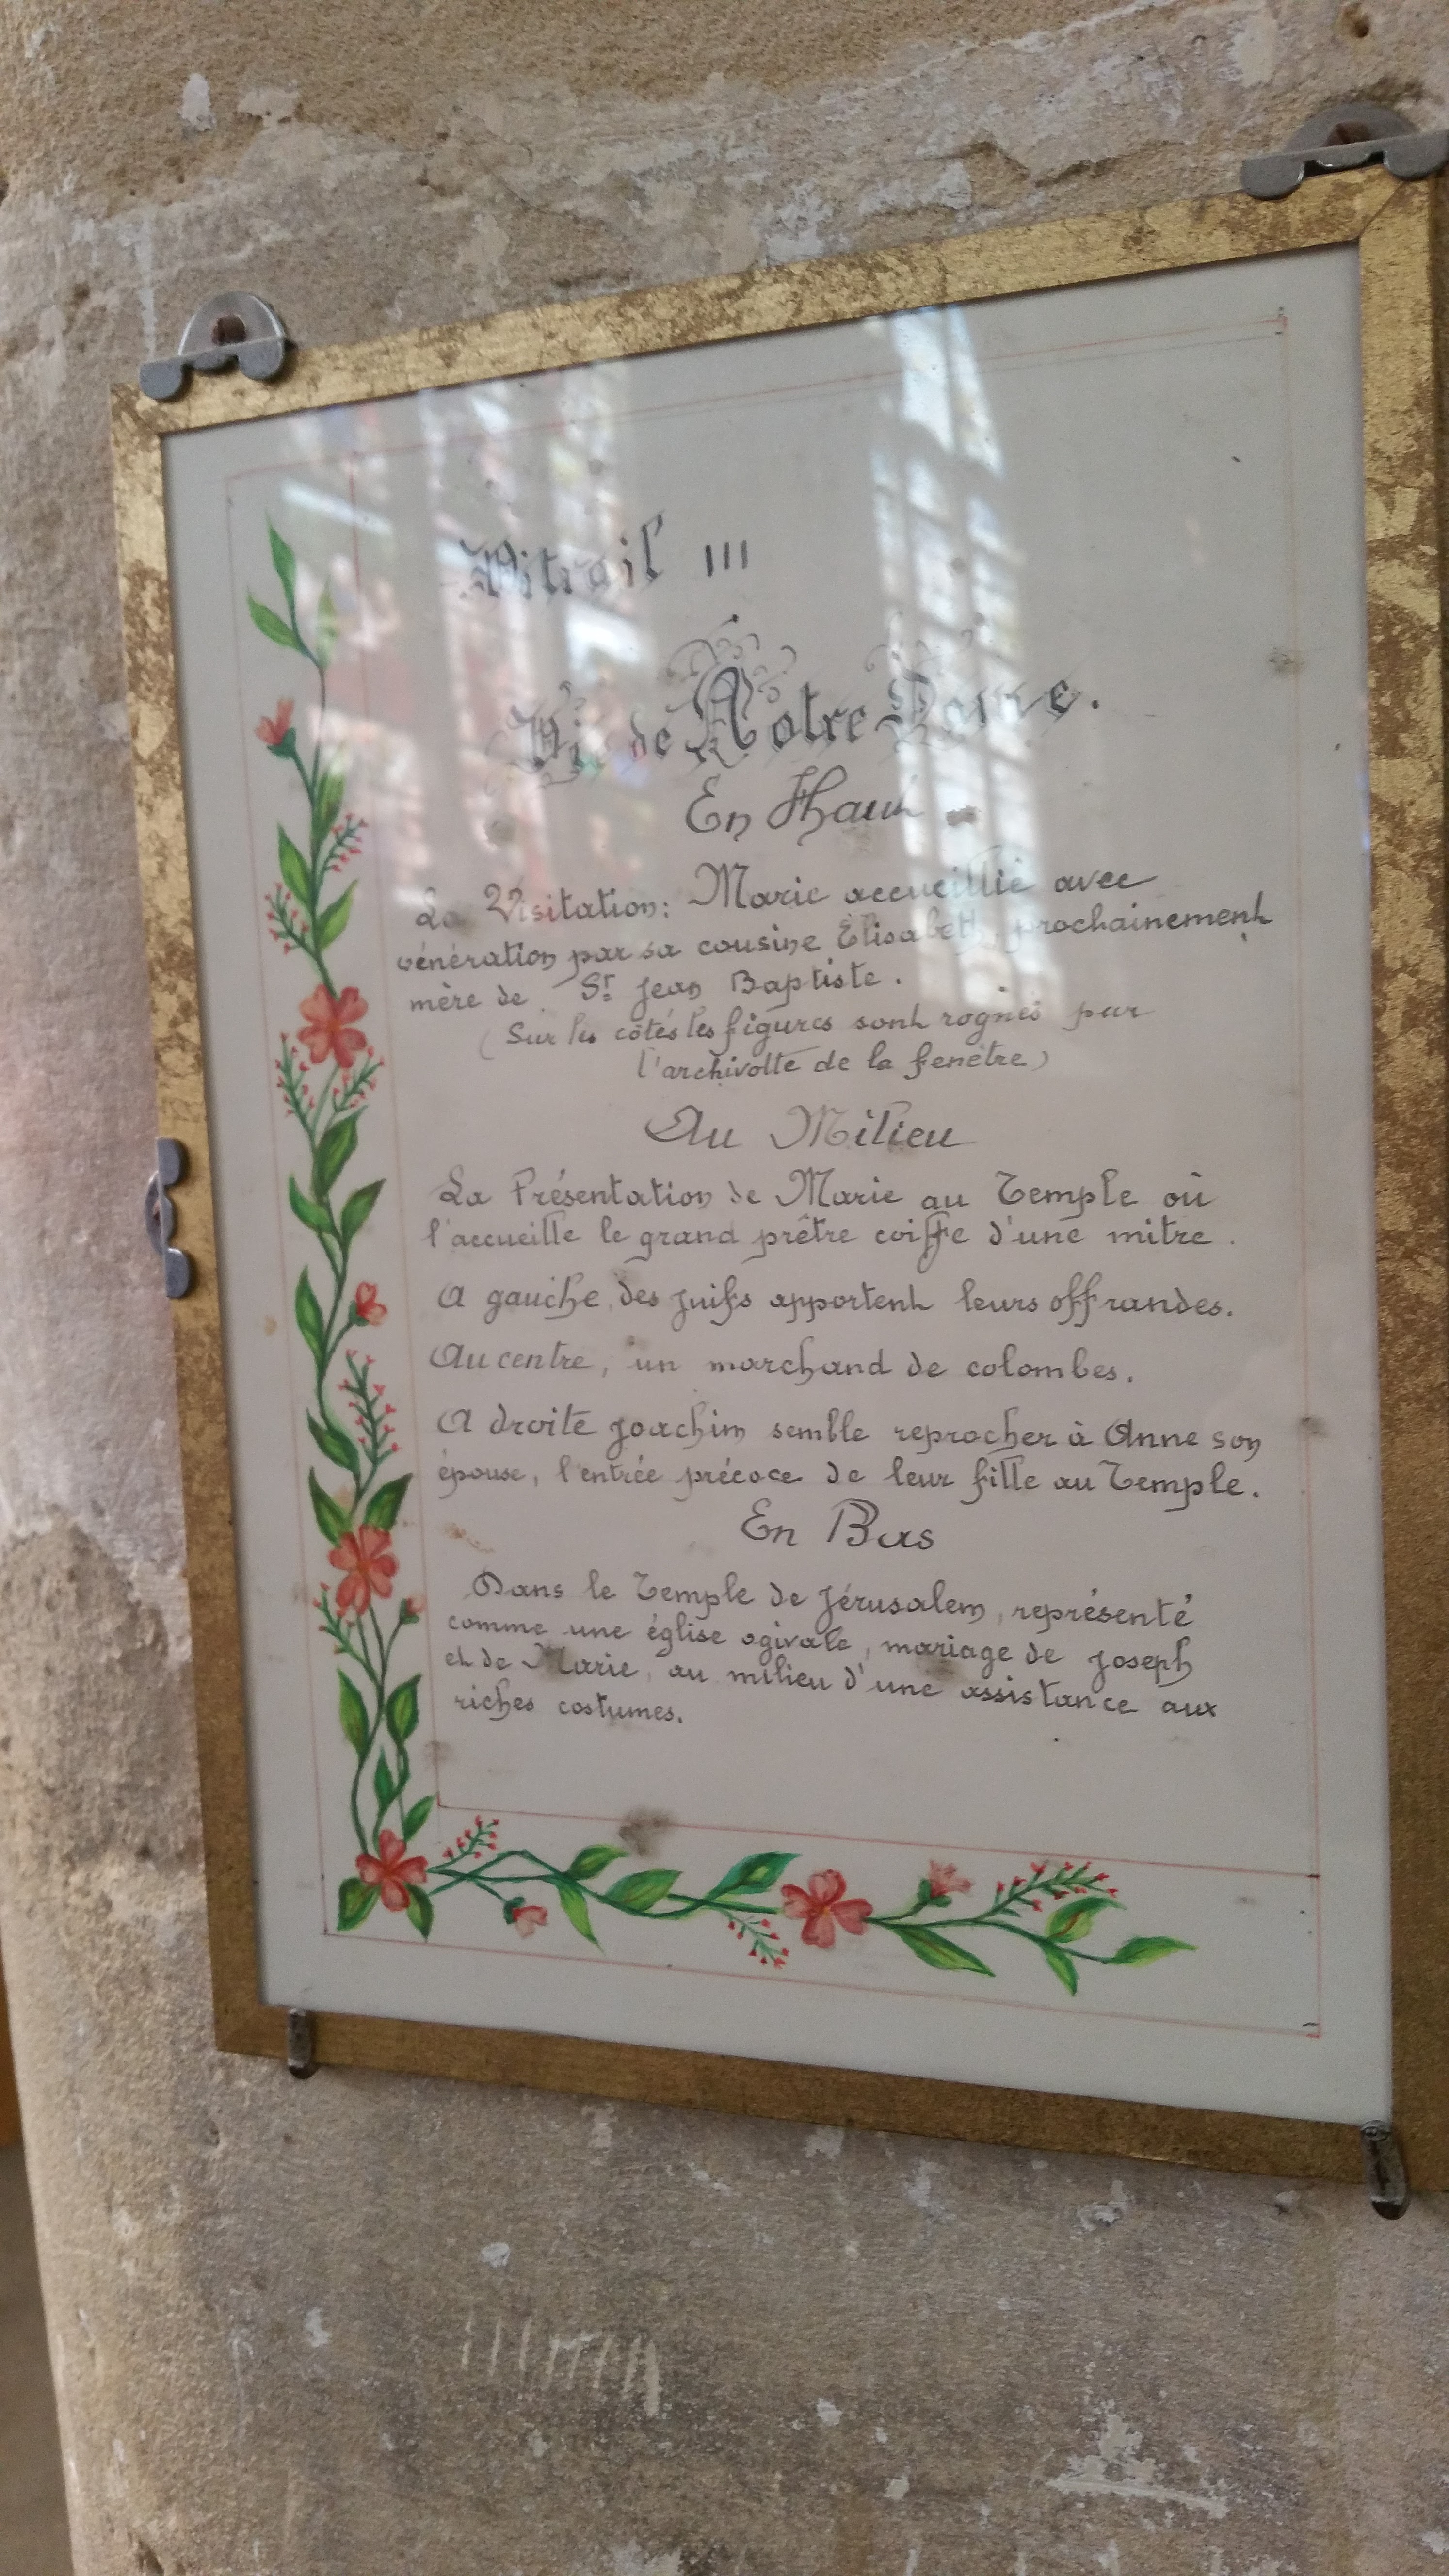 Vitrail III
Vie de Notre Dame.
En Haut
La Visitation: Marie accueillie avec
vénération par sa cousine Elisabeth, prochainement
mère de St Jean Baptiste.
(Sur les côtés les figures sont rognés par
l'archivolte de la fenêtre)
Au Milieu
La Présentation de Marie au Temple où
l'accueille le grand prêtre coiffe d'une mitre.
A gauche, des juifs apportent leurs offrandes.
Au centre, un marchand de colombes.
A droite Joachim semble reprocher à Anne son
épouse, l'entrée précoce de leur fille au Temple.
En Bas
Dans le Temple de Jérusalem, représenté
comme une église ogivale, mariage de Joseph
et de Marie, au milieu d'une assistance aux
riches costumes.